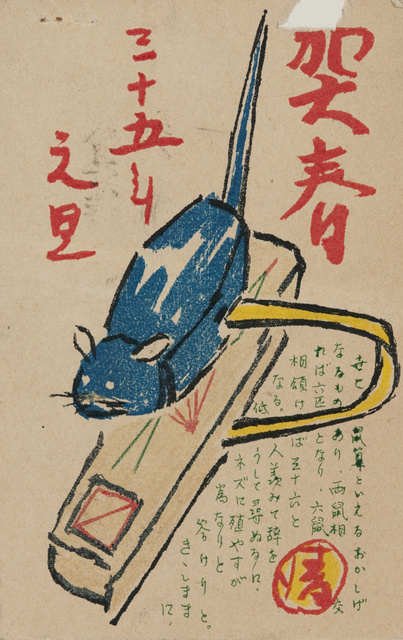 賀春
三十五年
元旦
世に鼠算といえるおかしげ
なるものあり、両鼠相交
れば六匹となり、六鼠
相傾けば五十六と
なる。人羨みて辞を
低うして尋ぬるに、
ネズに殖やすが
為なりと
答けりと。
きゝしまま
に、
晴